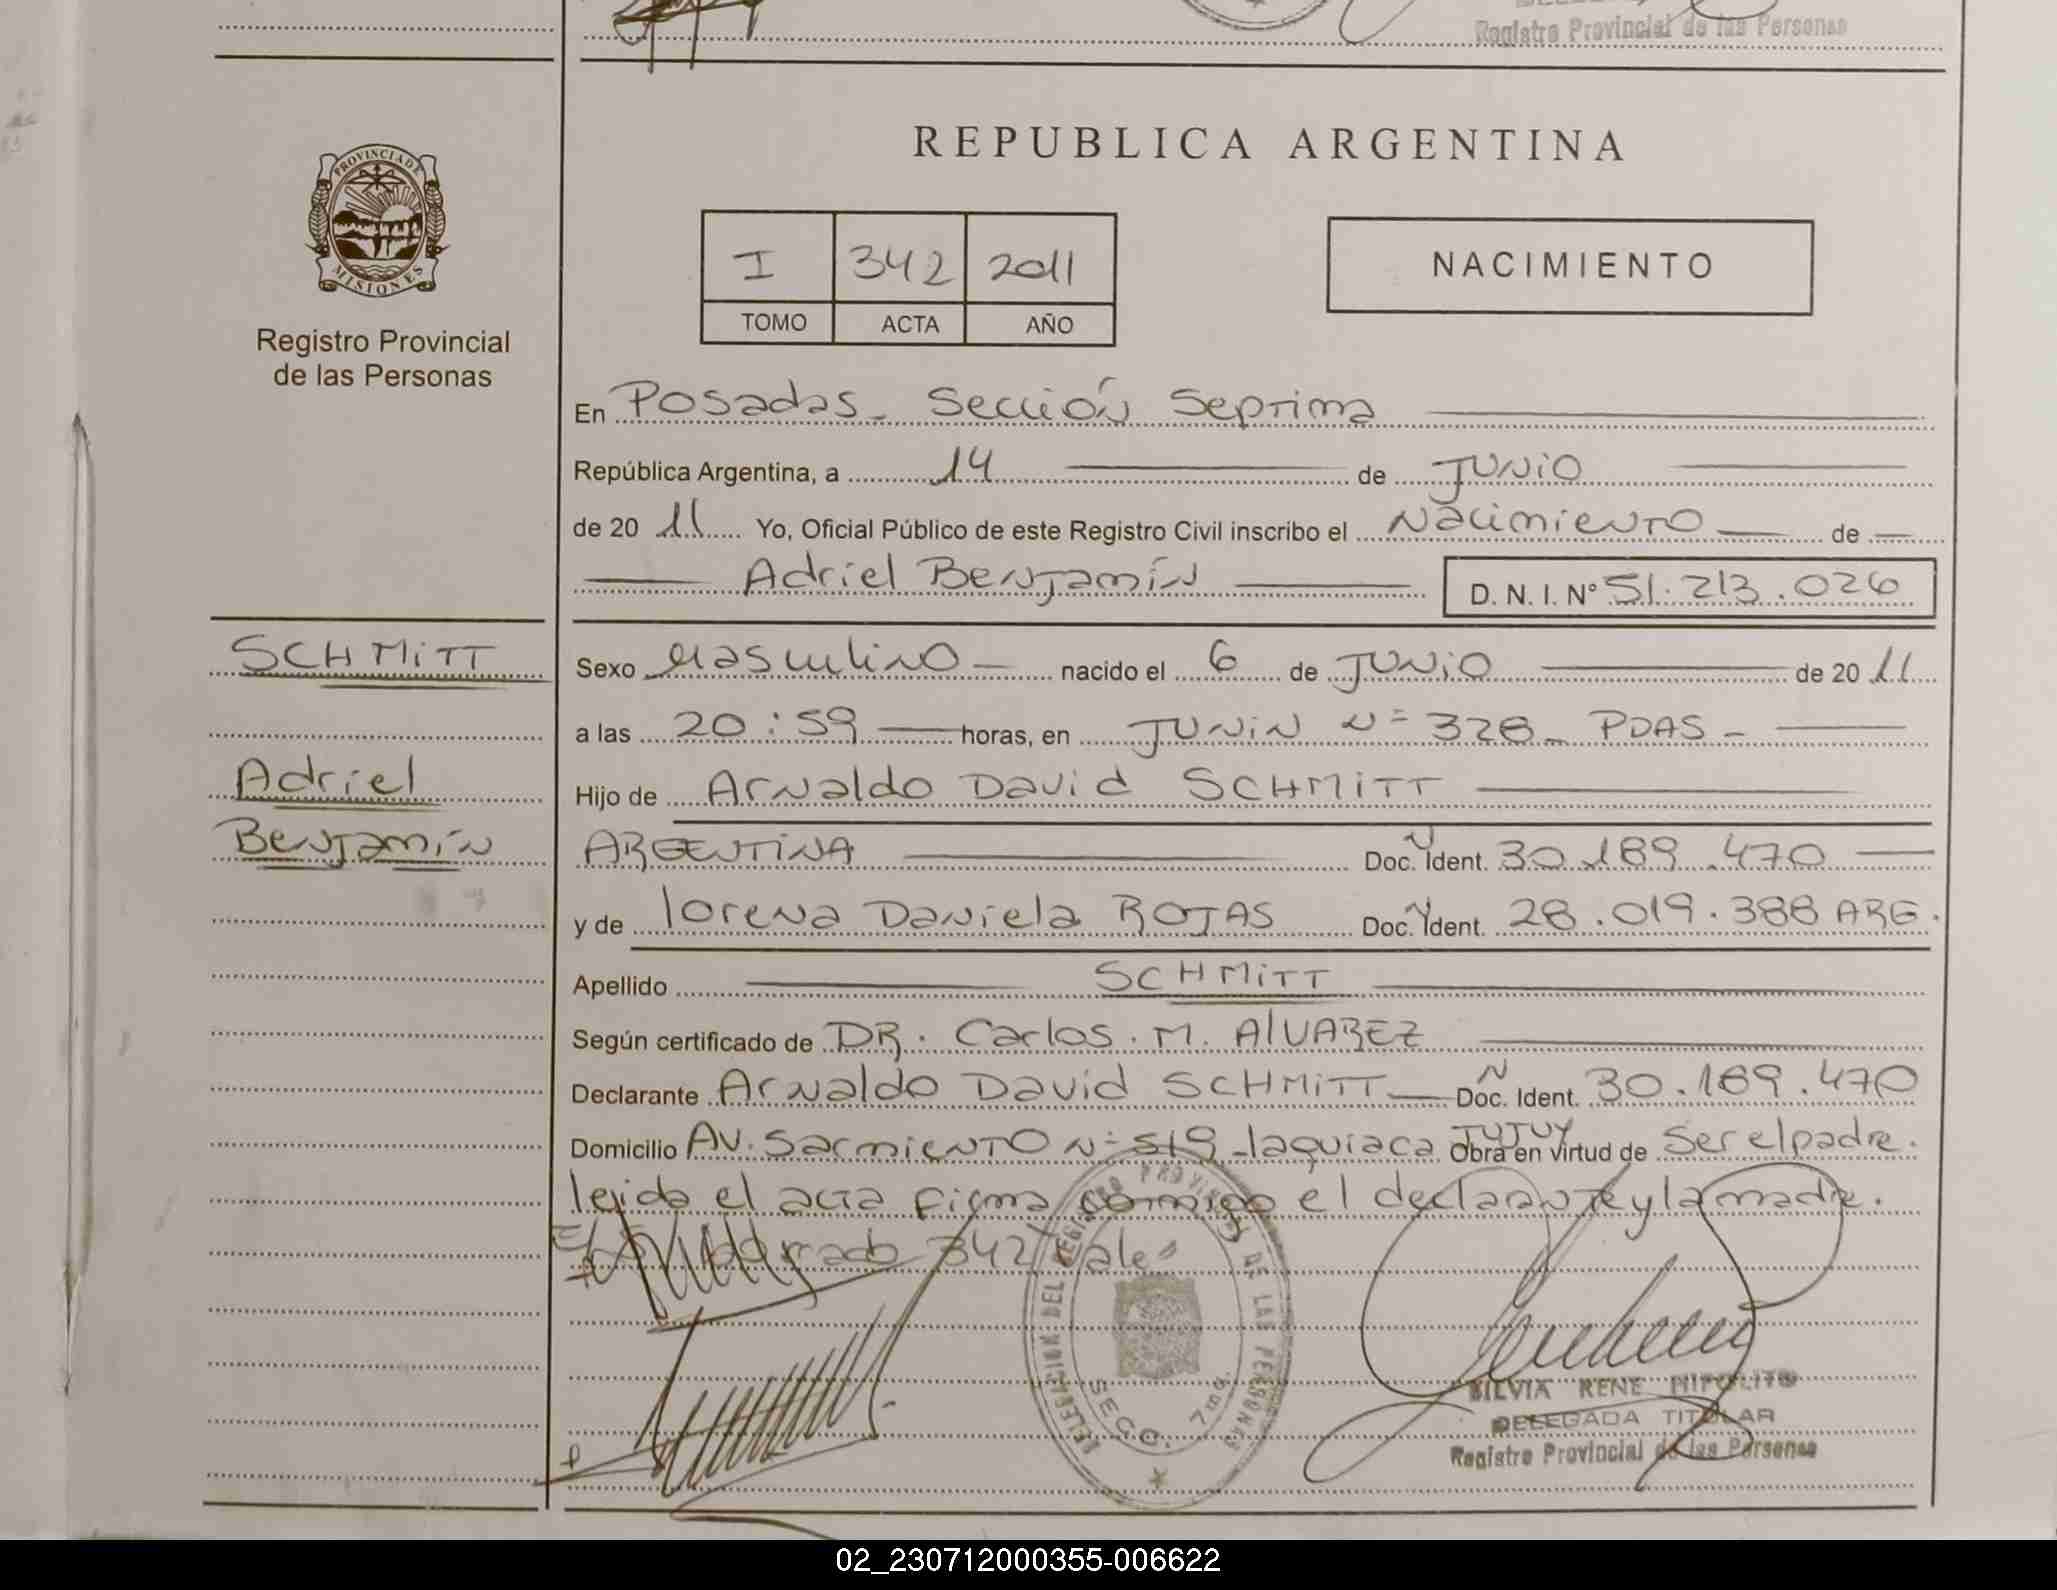 Registro Provincial de las Personas
PROVINCIA DE
MISIONES
Registro Provincial
de las Personas
REPUBLICA ARGENTINA
I 342 2011
TOMO ACTA AÑO
NACIMIENTO
En Posadas - Sección Septima
República Argentina, a 14 de Junio
de 20 11 Yo, Oficial Público de este Registro Civil inscribo el Nacimiento de
Adriel Benjamín D. N. I. Nº 51.213.026
SCHMITT
Adriel
Benjamín
Sexo Masculino nacido el 6 de Junio de 20 11
a las 20:59 horas, en Junin Nº 328 - PDAS -
Hijo de Arnaldo David SCHMITT
ARGENTINA Doc. N Ident. 30.189.470
y de lorena Daniela ROJAS Doc. N Ident. 28.019.388 ARG.
Apellido SCHMITT
Según certificado de DR. Carlos. M. AlVAREZ
Declarante Arnaldo David SCHMITT Doc. N Ident. 30.189.470
Domicilio AV. Sarmiento Nº 519 - laquiaca JUJUY Obra en virtud de Ser el padre.
leida el acta firma conmigo el declarante y la madre.
342 Vale
DELEGACION DEL REGISTRO PROVINCIAL DE LAS PERSONAS
SECC. 7ma.
SILVIA RENE HIPOLITO
DELEGADA TITULAR
Registro Provincial de las Personas
02_230712000355-006622